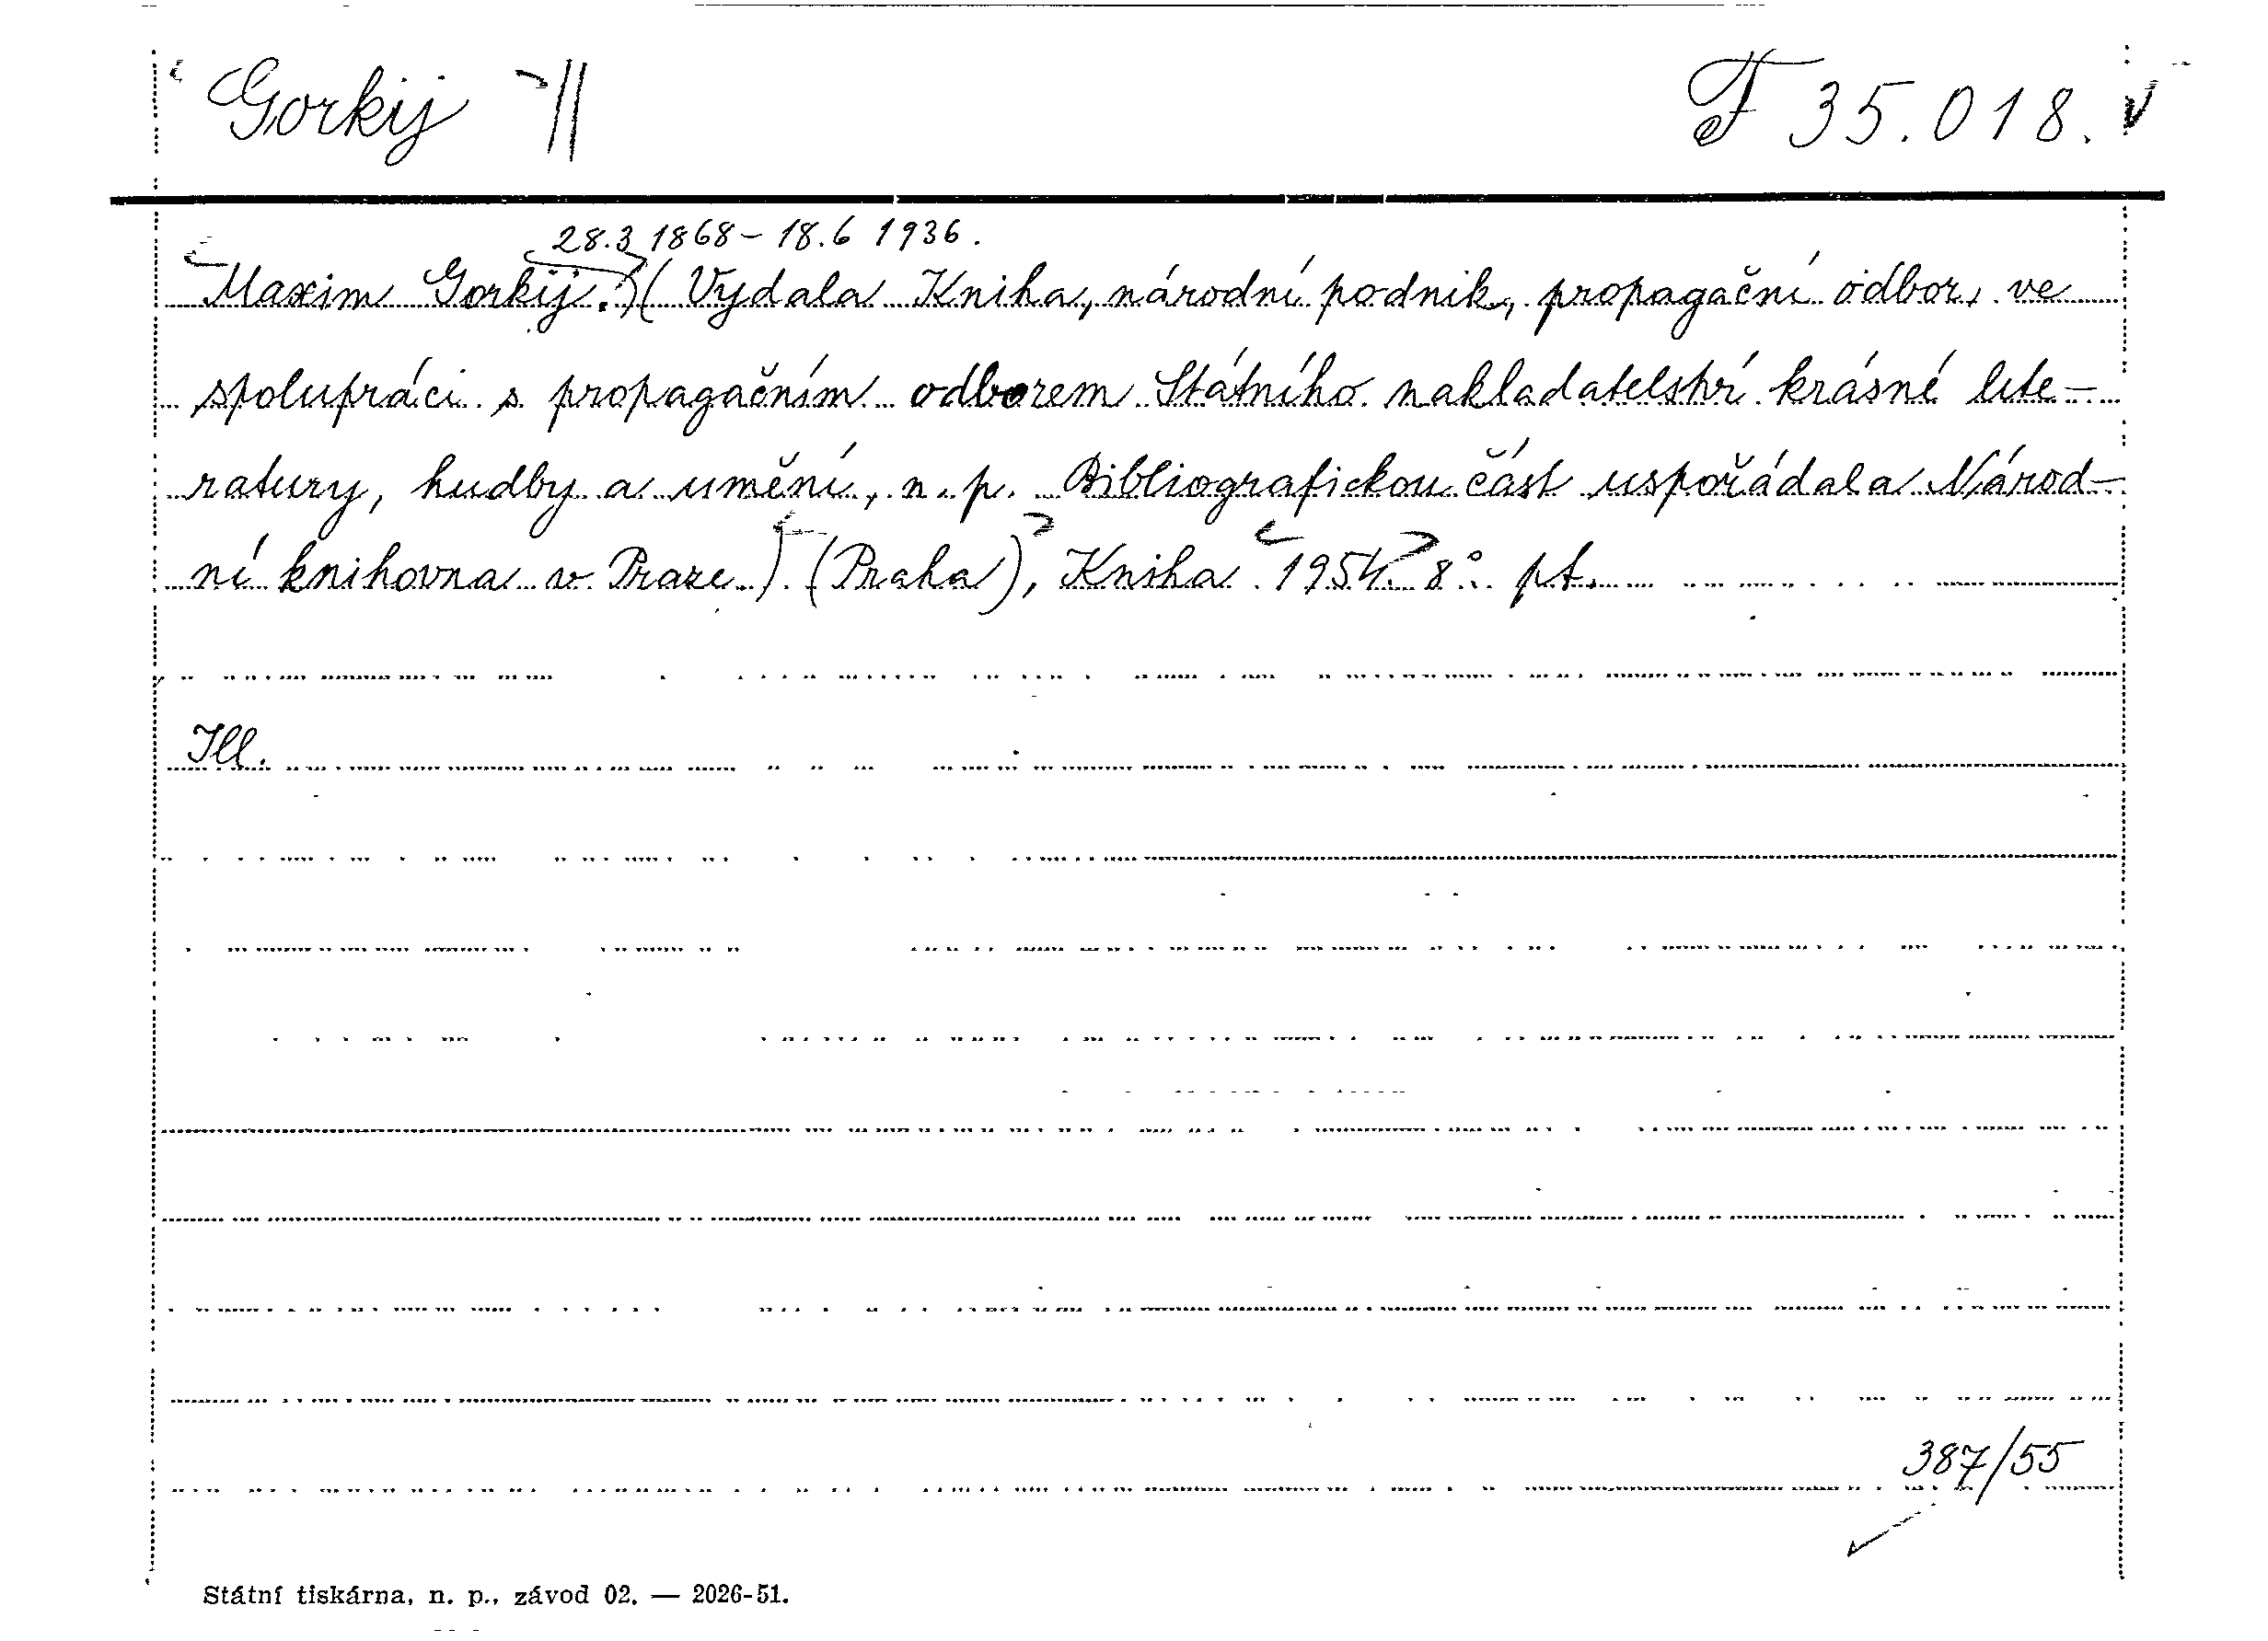 Gorkij F 35.018.
28.3 1868 – 18.6 1936.
Maxim Gorkij.) (Vydala Kniha, národní podnik, propagační odbor, ve
spolupráci s propagačním odborem Státního nakladatelství krásné lite-
ratury, hudby a umění, n. p. Bibliografickou část uspořádala Národ-
ní knihovna v Praze.) (Praha), Kniha 1954. 8°. pt.
Ill.
387/55
Státní tiskárna, n. p., závod 02. — 2026-51.